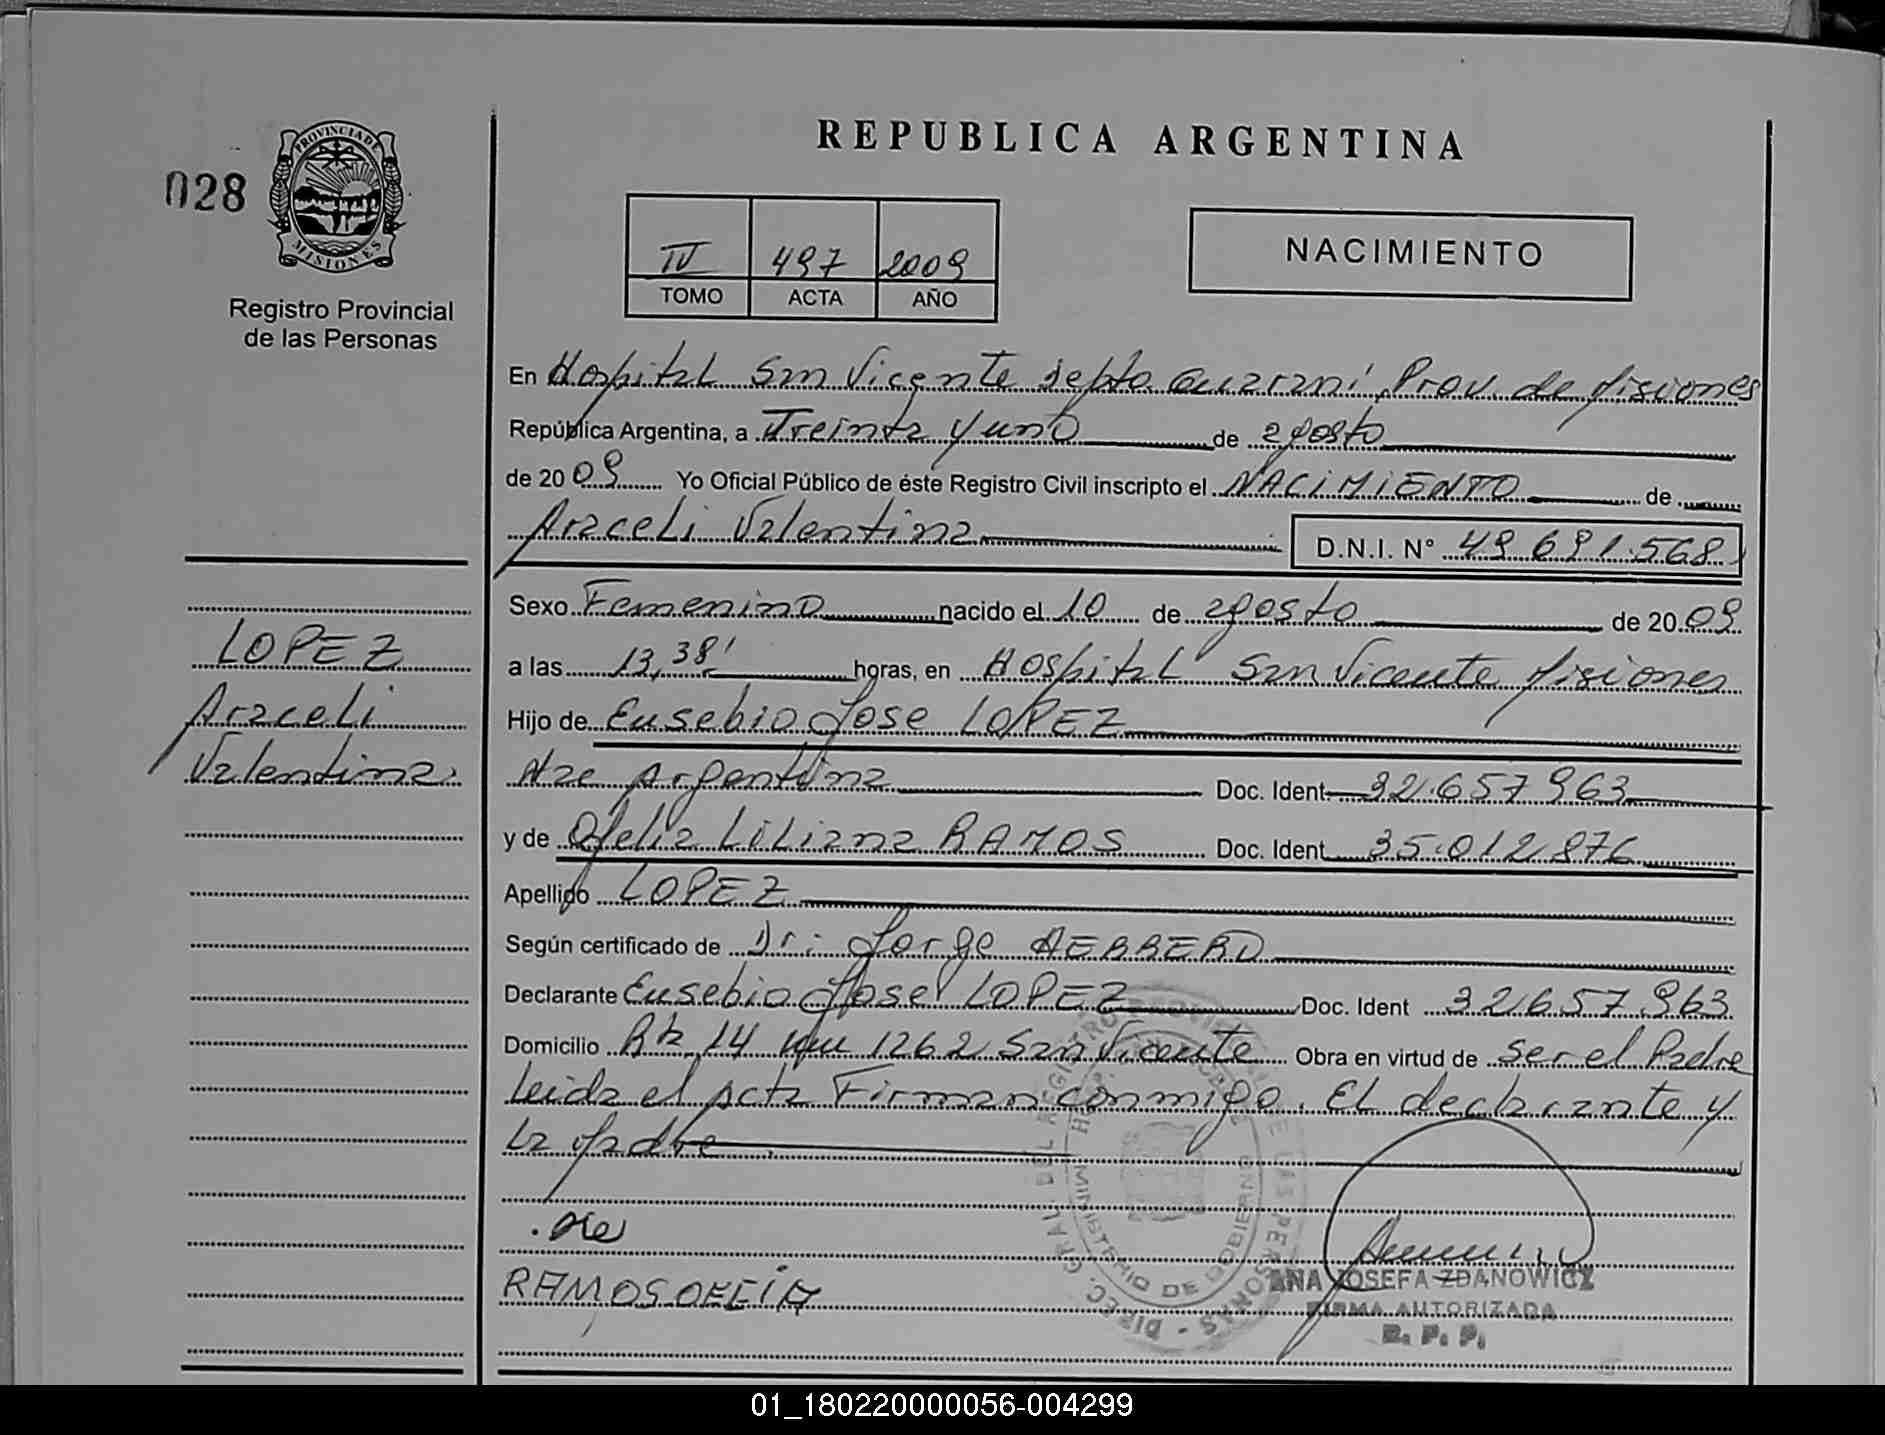 REPUBLICA ARGENTINA
028
PROVINCIA DE
MISIONES
Registro Provincial
de las Personas
IV 497 2009
TOMO ACTA AÑO
NACIMIENTO
En Hospital San Vicente depto. Guaraní, Prov. de Misiones
República Argentina, a Treinta y uno de agosto
de 2009 Yo Oficial Público de éste Registro Civil inscripto el NACIMIENTO de
Araceli Valentina
D.N.I. N° 49.691.568
Sexo Femenino nacido el 10 de agosto de 2009
a las 13,38' horas, en Hospital San Vicente Misiones
Hijo de Eusebio Jose LOPEZ
Nac Argentina Doc. Ident. 32.657.963
y de Ofelia Liliana RAMOS Doc. Ident. 35.012.876
Apellido LOPEZ
Según certificado de Dr: Jorge HERRERO
Declarante Eusebio Jose LOPEZ Doc. Ident 32.657.963
Domicilio Rta 14 km 1262 San Vicente Obra en virtud de ser el Padre
Leida el acta Firman conmigo. El declarante y
la Madre.
LOPEZ
Araceli
Valentina.
RAMOS OFELIA
DIREC. GRAL. DEL REGISTRO PROVINCIAL DE LAS PERSONAS
MINISTERIO DE GOBIERNO
ANA JOSEFA ZDANOWICZ
FIRMA AUTORIZADA
R. P. P.
01_180220000056-004299